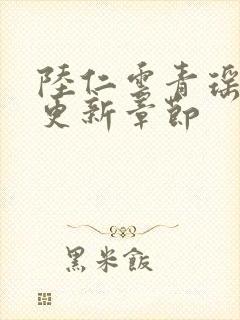 陸仁雲青瑶
更新章節
黑米飯